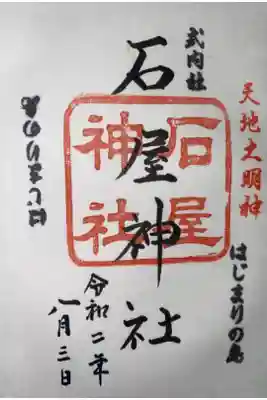 天地大明神
はじまりの島
式内社
石屋神社
石屋
神社
令和二年
八月三日